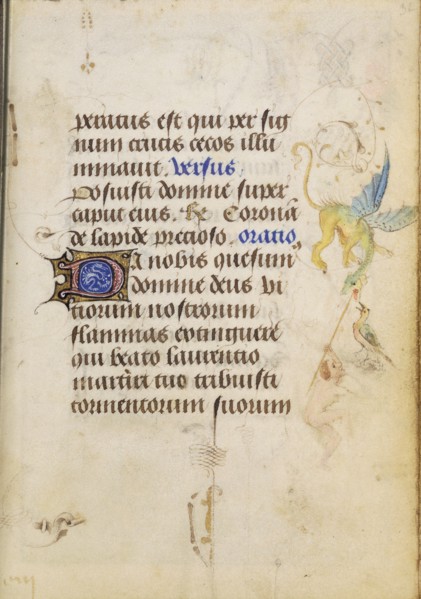 peratus est qui per sig
num crucis cecos illu
minauit. versus.
Posuisti domine super
caput eius. Rx Coronā
de lapide precioso. oratio
Da nobis quesum
domine deus vi
tiorum nostrorum
flammas extinguere
qui beato laurentio
martiri tuo tribuisti
tormentorum suorum